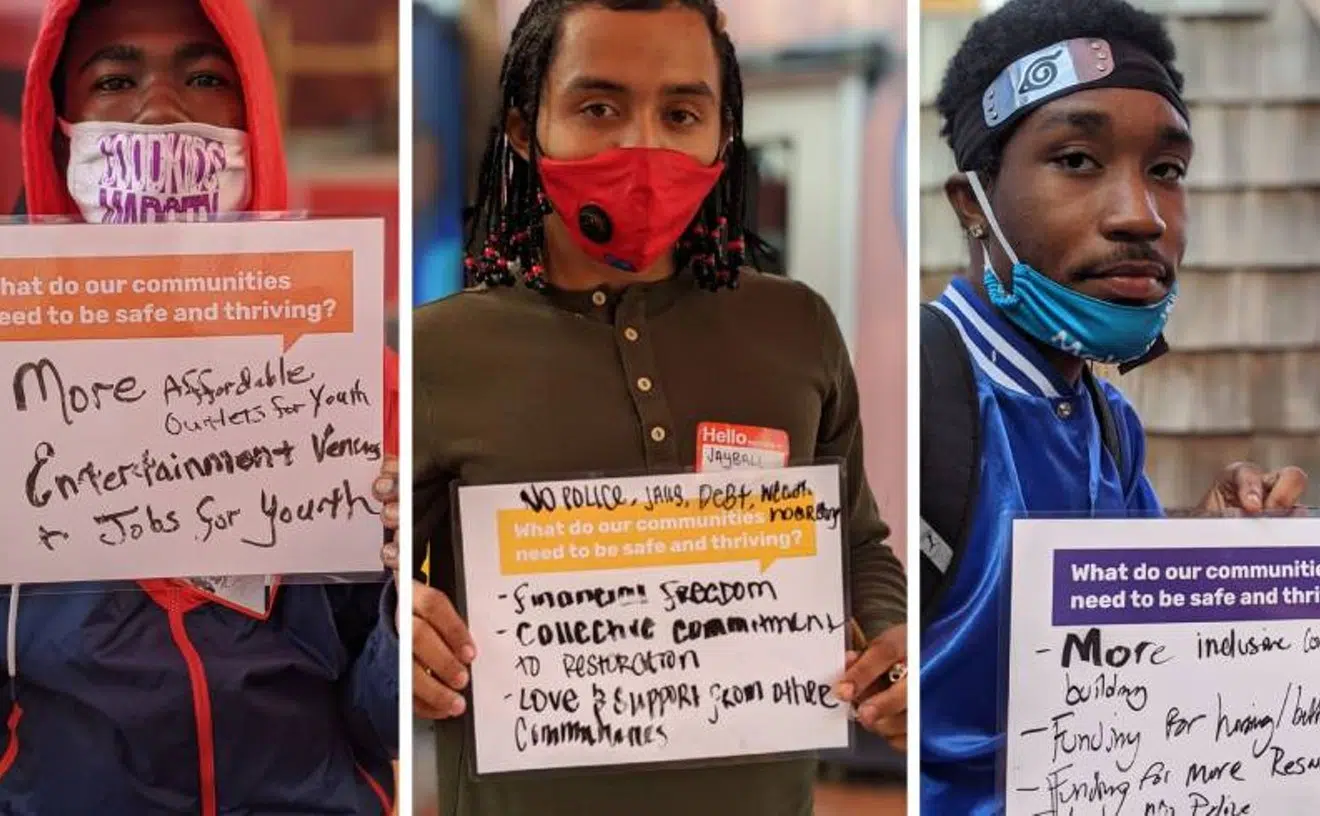 GOODKIDS
hat do our communities
eed to be safe and thriving?
More Affordable
Outlets for Youth
Entertainment Venues
+ Jobs for Youth
Hello
JAYBALL
NO POLICE, JAILS, DEBT,
What do our communities
need to be safe and thriving?
- Financial Freedom
- Collective commitment
to RESTORATION
- LOVE & SUPPORT from other
Communities
What do our communitie
need to be safe and thri
- More inclusive Co
building
- Funding for
- Funding for more Res
Police